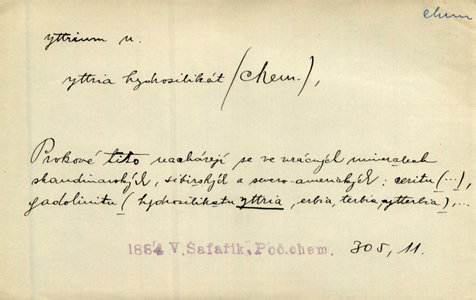 chem
yttrium n.
yttria hydrosilikát (chem.),
Prvkové tito nacházejí se ve vzácných mineralech
skandinavských, sibirských a severo-amerických: ceritu (...),
gadolinitu (hydrosilikatu yttria, erbia, terbia, ytterbia), ...
1884 V. Šafařík, Poč. chem. 305, 11.